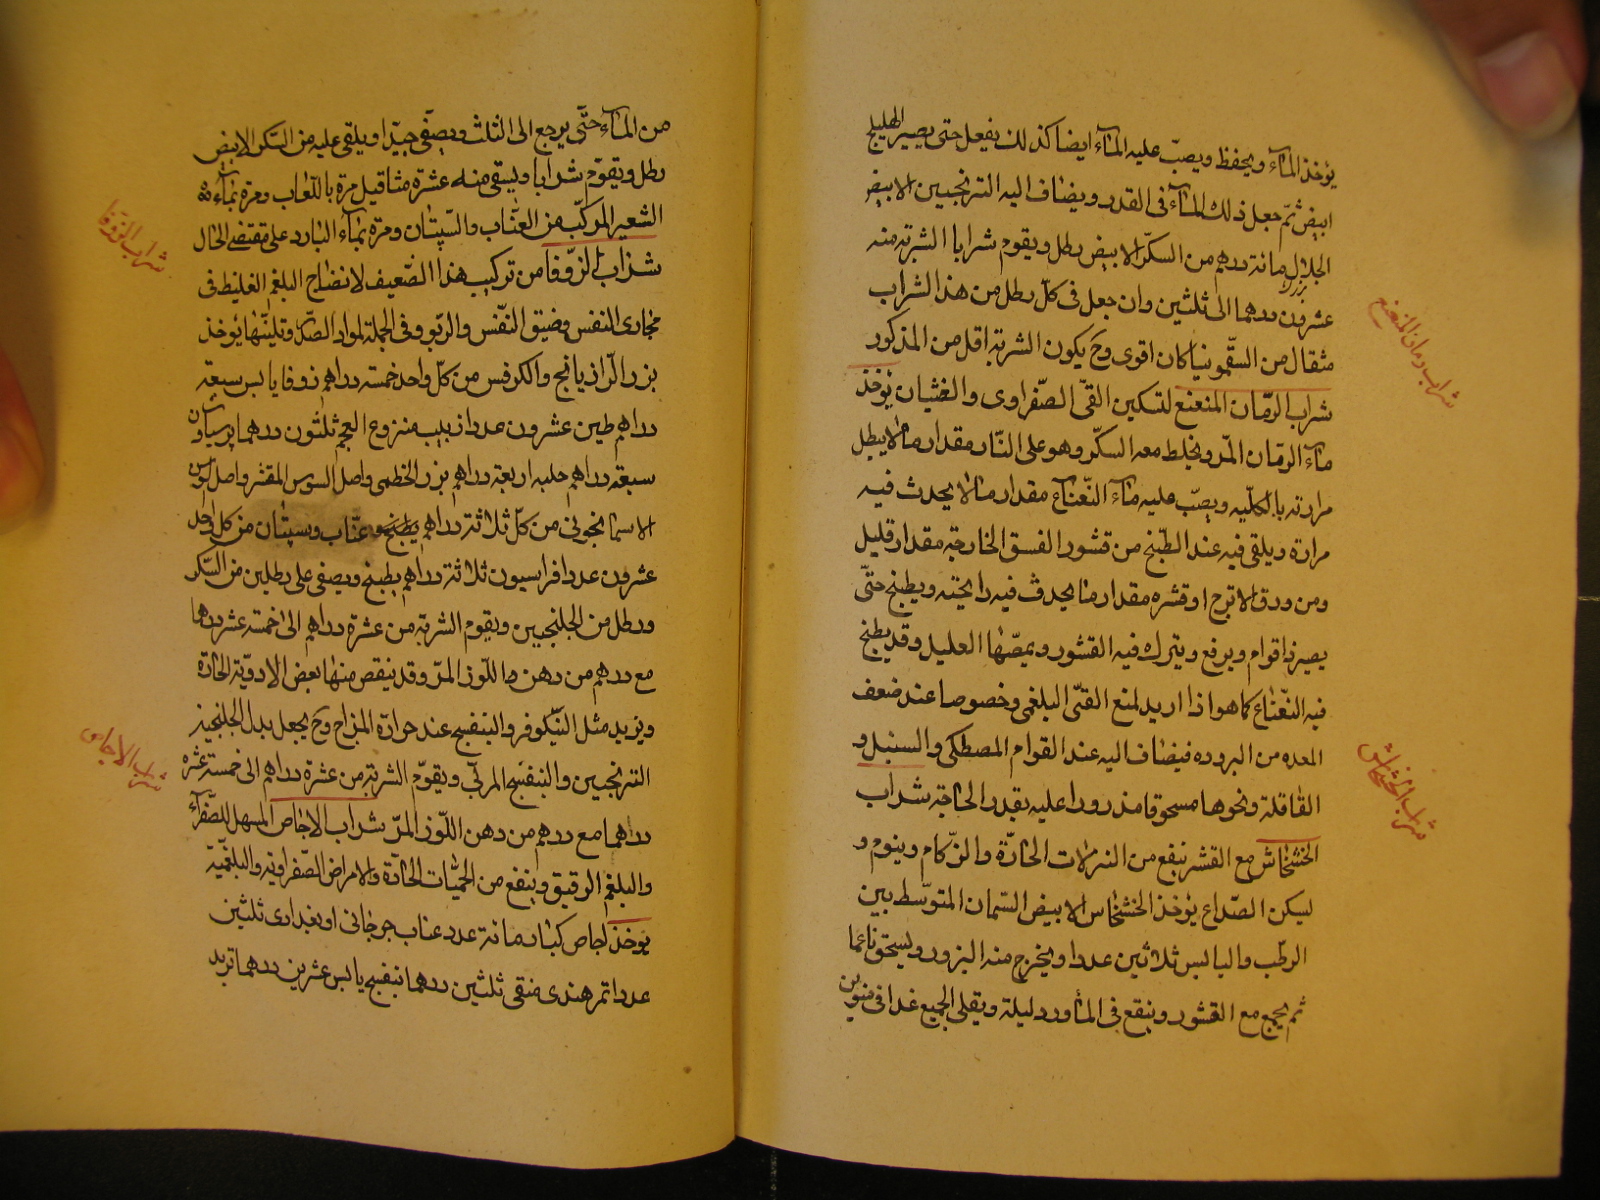 يؤخذ الماء ويحفظ ويصبّ عليه الماء ايضا كذلك يفعل حتى يصير الهليلج
ابيض ثمّ جعل ذلك الماء فى القدر ويضاف اليه الترنجبين الابيض
الجلال مائة درهم من السكّر الابيض رطل ويقوم شرابا الشربة منه
عشرون درهما الى ثلثين وان جعل فى كلّ رطل من هذا الشراب
مثقال من السقّمونيا كان اقوى وح يكون الشربة اقل من المذكور
شراب الرمّان المنعنع لتسكين القىّ الصّفراوى والغثيان يؤخذ
ماء الرمّان المرّ ويخلط معه السكّر وهو على النّار مقدار ما لا يبطل
مرارته بالكلّيه ويصبّ عليه ماء النّعناع مقدار ما لا يحدث فيه
مرارة ويلقى فيه عند الطّبخ من قشور الفستق الخارجة مقدار قليل
ومن ورق الاترج او قشره مقدار ما يحدث فيه رايحته ويطبخ حتّى
يصير ذا قوام ويرفع ويترك فيه القشور ويمصّها العليل وقد يطبخ
فيه النّعناع كما هو اذا اريد لمنع القىّ البلغمى وخصوصا عند ضعف
المعده من البروده فيضاف اليه عند القوام المصطكى والسنبل و
القاقلة ونحوها مسحوقا مذرورا عليه بقدر الحاجة شراب
الخشخاش مع القشر ينفع من النزلات الحادّة والزّكام وينوم و
يسكن الصّداع يؤخذ الخشخاش الابيض السّمان المتوسّط بين
الرطب واليابس ثلاثين عددا ويخرج منه البزور ويسحق ناعما
ثم يجمع مع القشور وينقع فى الماورد ليلة ويقلى الجميع غدا فى منوين
شراب رمان المنعنع
شراب الخشخاش
من الماء حتّى يرجع الى الثلث ويصفّى جيّدا ويلقى عليه من السّكر الابيض
رطل ويقوّم شرابا ويسقى منه عشرة مثاقيل مرة باللّعاب ومرة بماء
الشعير المركّب من العنّاب والسّپستان ومرة بماء البارد على مقتضى الحال
شراب الزّوفا من تركيب هذا الضّعيف لانضاج البلغم الغليظ فى
مجارى النفس وضيق النفّس والربو وفى الجملة لمواد الصّدر وتليّنها يؤخذ
بزر الرّازيانج والكرفس من كلّ واحد خمسة دراهم زوفا يابس سبعة
دراهم طين عشرون عددا زبيب منزوع العجم ثلثون درهما پرسياوشان
سبعة دراهم حلبه اربعة دراهم بزر الخطمى واصل السوس المقشر واصل السوسن
الاسمانجونى من كلّ ثلاثة دراهم عنّاب وسپستان من كل واحد
عشرون عددا فراسيون ثلاثة دراهم يطبخ ويصفى على رطلين من السّكر
ورطل من الجلنجبين ويقوم الشربة من عشرة دراهم الى خمسة عشر درهما
مع درهم من دهن اللّوز المرّ وقد ينقص منها بعض الادويّة الحادّة
ويزيد مثل النّيلوفر والبنفسج عند حرارة المزاج وح يجعل بدل الجلنجبين
الترنجبين والبنفسج المربّى ويقوّم الشربة من عشرة دراهم الى خمسة عشر
درهما مع درهم من دهن اللّوز المرّ شراب الاجاص المسهل للصّفراء
والبلغم الرقيق وينفع من الحميّات الحادّة والامراض الصّفراوية والبلغميّة
يؤخذ اجاص كبار مائة عدد عناب جرجانى او بغدادى ثلثين
عددا تمر هندى منقى ثلثين درهما بنفسج يابس عشرين درهما تربد
شراب الزوفا
شراب الاجاص